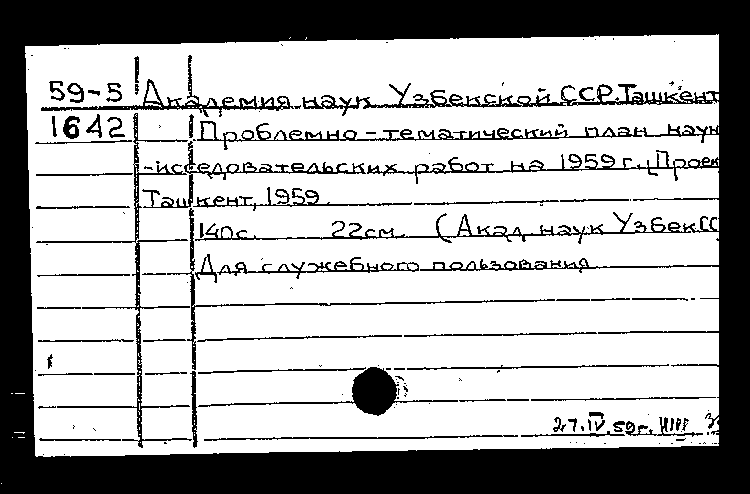 59-5 Академия наук Узбекской ССР. Ташкент
1642 Проблемно-тематический план научн
-исседовательских работ на 1959 г. [Проек
Ташкент, 1959.
140с. 22см. (Акад. наук Узбек.СС
Для служебного пользования
27.IV.59г.